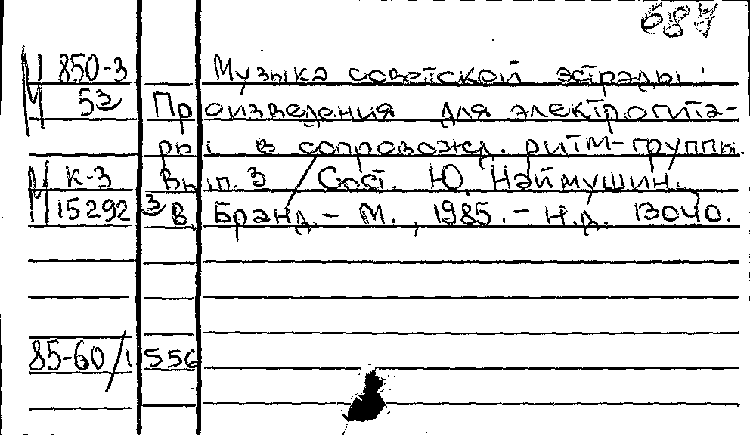 687
М 850-3 Музыка советской эстрады:
53 Произведения для электрогита-
ры в сопровожд. ритм-группы.
М К-3 Вып. 3 / Сост. Ю. Наймушин.
15292 3 В. Бранд. - М., 1985. - Н.д. 13040.
85-60/1556